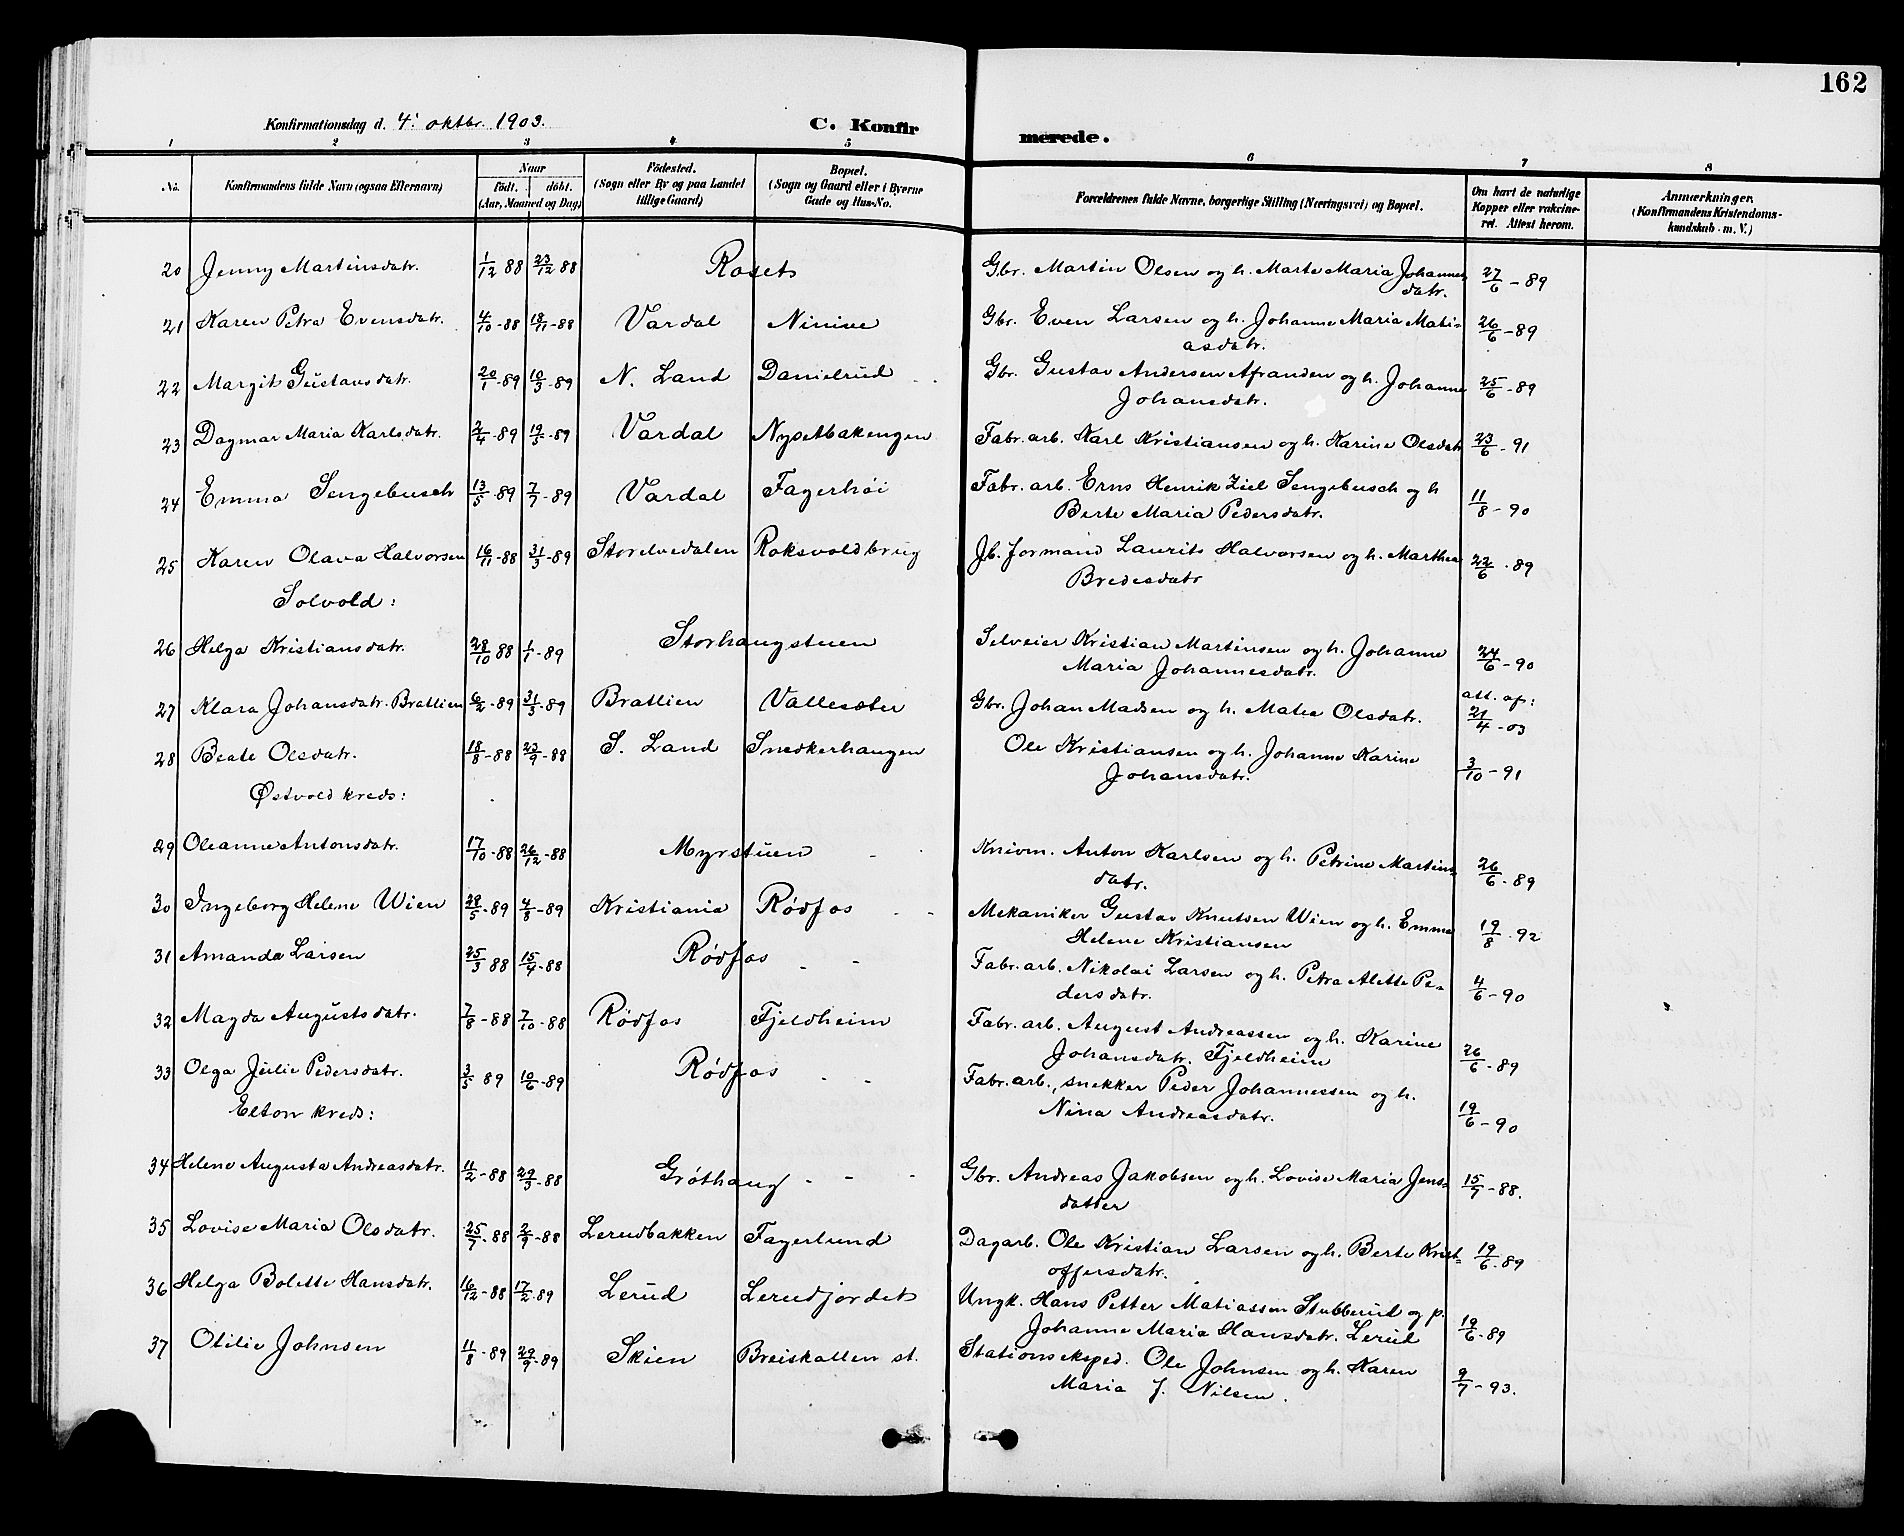 162
Konfirmationsdag d. 4' oktbr. 1903.
C. Konfirmerede.
1 2 3 4 5 6 7 8
No. Konfirmandens fulde Navn (ogsaa Efternavn)
Naar
født. døbt.
(Aar, Maaned og Dag)
Födested.
(Sogn eller By og paa Landet
tillige Gaard)
Bopæl.
(Sogn og Gaard eller i Byerne
Gade og Hus-No.
Forældrenes fulde Navne, borgerlige Stilling (Næringsvei) og Bopæl.
Om havt de naturlige
Kopper eller vakcine-
ret. Attest herom.
Anmærkninger.
(Konfirmandens Kristendoms-
kundskab m. V.)
20 Jenny Martinsdatr. 1/12 88 23/12 88 Roset Gbr. Martin Olsen og h. Marte Maria Johannes- 27/6 - 89
datr.
21 Karen Petra Evensdatr. 4/10 - 88 18/11 - 88 Vardal Ninive Gbr. Even Larsen og h. Johanne Maria Mati- 26/6 - 89
asdatr.
22 Margit Gustavsdatr. 20/1 - 89 10/3 - 89 N. Land Danielrud Gbr. Gustav Andersen Afranden og h. Johanne 25/6 - 89
Johansdatr.
23 Dagmar Maria Karlsdatr. 2/4 - 89 19/5 - 89 Vardal Nysetbakengen Fabr. arb. Karl Kristiansen og h. Karine Olsdatr 23/6 - 91
24 Emma Sengebusch 13/5 - 89 7/7 - 89 Vardal Fagerhöi Fabr. arb. Erns Henrik Ziel Sengebusch og h
Berte Maria Pedersdatr. 11/8 - 90
25 Karen Olava Halvorsen 16/11 - 88 31/3 - 89 Storelvedalen Roksvoldbrug Jb. formand Laurits Halvorsen og h. Marthea 22/6 - 89
Bredesdatr
Solvold:
26 Helga Kristiansdatr. 28/10 88 1/1 - 89 Storhaugstuen Selveier Kristian Martinsen og h. Johanne 24/6 - 90
Maria Johannesdatr.
27 Klara Johansdatr. Bratlien 6/2 - 89 31/3 - 89 Bratlien Vallesæter Gbr. Johan Madsen og h. Matea Olsdatr. att. af: 21/4 - 03
28 Beate Olsdatr. 18/8 - 88 23/9 - 88 S. Land Snedkerhaugen Ole Kristiansen og h. Johanne Karine 3/10 - 91
Johansdatr.
Østvold kreds:
29 Oleanne Antonsdatr. 17/10 - 88 26/12 - 88 Myrstuen Knivm. Anton Karlsen og h. Petrine Martins- 26/6 - 89
datr.
30 Ingeborg Helene Wien 28/5 - 89 4/8 - 89 Kristiania Rødfos Mekaniker Gustav Knutsen Wien og h. Emma 19/8 - 92
Helene Kristiansen
31 Amanda Larsen 25/3 88 15/4 - 88 Rødfos Fabr. arb. Nikolai Larsen og h. Petra Alette Pe- 4/6 - 90
dersdatr.
32 Magda Augustsdatr. 7/8 - 88 7/10 - 88 Rødfos Fjeldheim Fabr. arb. August Andreassen og h. Karine
Johansdatr. Fjeldheim 26/6 - 89
33 Olga Julie Pedersdatr. 3/5 89 10/6 - 89 Rødfos Fabr. arb., snekker Peder Johannessen og h.
Nina Andreasdatr. 19/6 - 90
Elton kreds:
34 Helene Augusta Andreasdatr. 11/2 - 88 29/3 - 88 Gróthaug Gbr. Andreas Jakobsen og h. Lovise Maria Jens- 15/7 - 88.
datter
35 Lovise Maria Olsdatr. 25/7 - 88 2/9 - 88 Lerudbakken Fagerlund Dagarb. Ole Kristian Larsen og h. Berte Krist- 19/6 - 89
offersdatr.
36 Helga Bolette Hansdatr. 16/12 - 88 17/2 - 89 Lerud Lerudjordet Ungk. Hans Petter Matiassen Stubberud og p.
Johanne Maria Hansdatr. Lerud 19/6 - 89
37 Otilie Johnsen 11/8 - 89 29/9 - 89 Skien Breiskallen st. Stationseksped. Ole Johnsen og h. Karen
Maria J. Nilsen. 9/7 - 93.